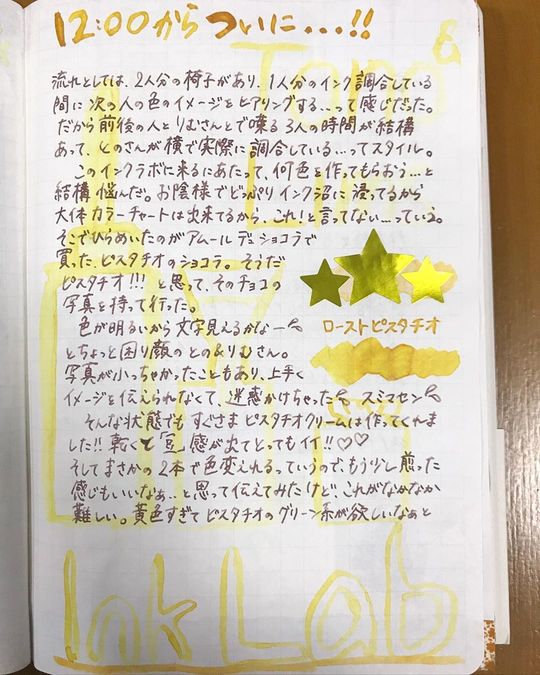 12:00からついに...!!
流れとしては、2人分の椅子があり、1人分のインク調合している
間に次の人の色のイメージをヒアリングする...って感じだった。
だから前後の人とりむさんとで喋る3人の時間が結構
あって、とのさんが横で実際に調合している...ってスタイル。
このインクラボに来るにあたって、何色を作ってもらおう...と
結構悩んだ。お陰様でどっぷりインク沼に浸ってるから
大体カラーチャートは出来てるから、これ!と言ってない...っていう。
そこでひらめいたのがアムール デュ ショコラで
買った、ピスタチオのショコラ。そうだ
ピスタチオ!!! と思って、そのチョコの
写真を持って行った。
色が明るいから文字見えるかなー
とちょっと困り顔のとの&りむさん。
写真が小っちゃかったこともあり、上手く
イメージを伝えられなくて、迷惑かけちゃった スミマセン
そんな状態でもすぐさまピスタチオクリームは作ってくれま
した!! 乾くと「豆」感が出てとってもイイ!!♡♡
そしてまさかの2本で色変えれるっていうので、もう少し煎った
感じもいいなぁ..と思って伝えてみたけど、これがなかなか
難しい。黄色すぎてピスタチオのグリーン系が欲しいなぁと
ローストピスタチオ
&
Ink Lab